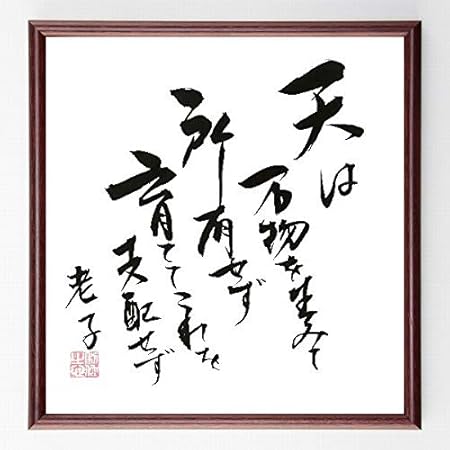 天は
万物を生みて
所有せず
育ててこれを
支配せず
老子